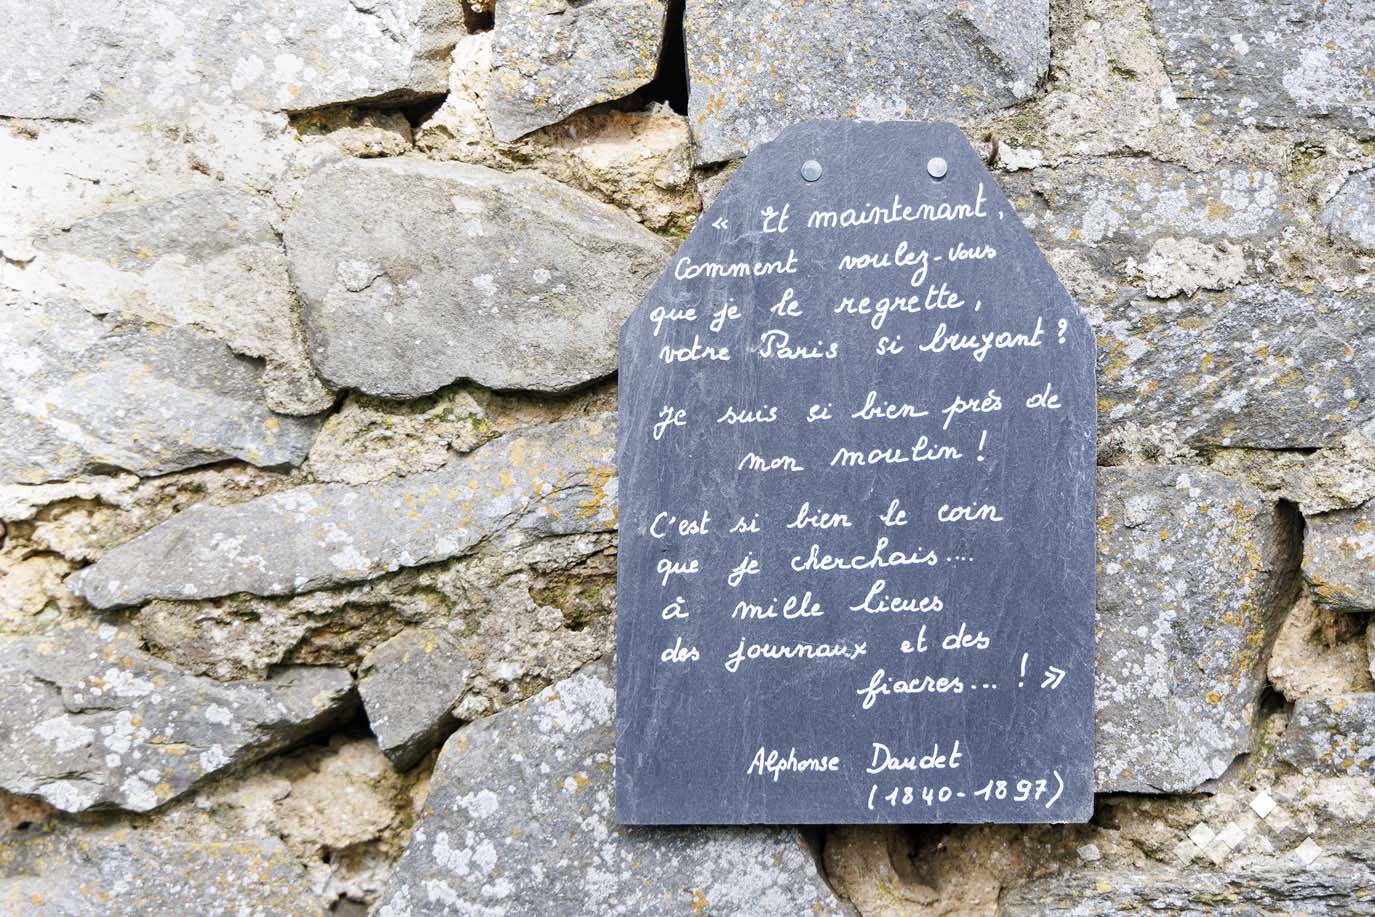 « Et maintenant,
Comment voulez-vous
que je le regrette,
votre Paris si bruyant ?
Je suis si bien près de
mon moulin !
C'est si bien le coin
que je cherchais....
à mille lieues
des journaux et des
fiacres... ! »
Alphonse Daudet
(1840-1897)